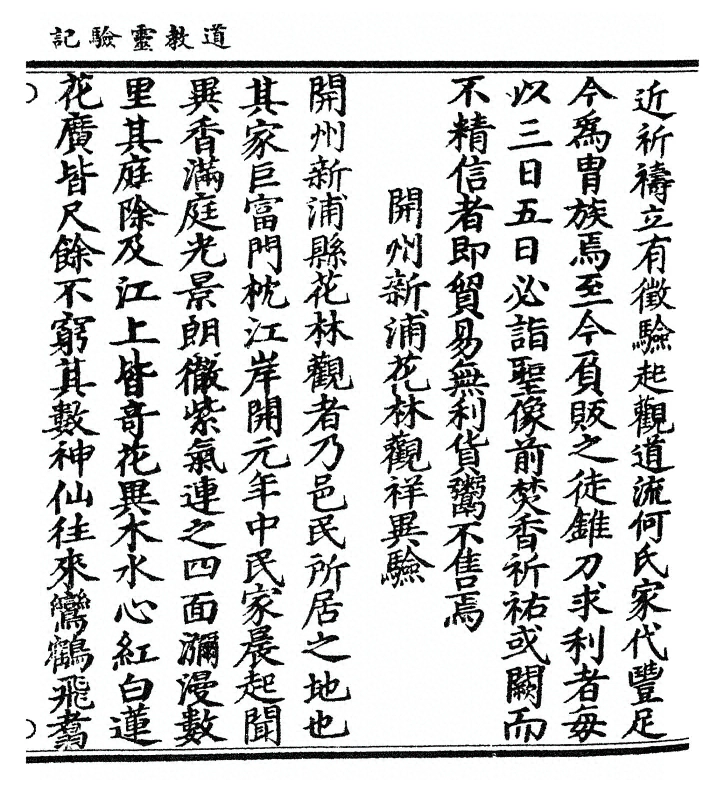 道教靈驗記
近祈禱立有徵驗起觀道流何氏家代豐足
今爲胄族焉至今負販之徒錐刀求利者每
以三日五日必詣聖像前焚香祈祐或闕而
不精信者即貿易無利貨鬻不售焉
開州新浦花林觀祥異驗
開州新浦縣花林觀者乃邑民所居之地也
其家巨富門枕江岸開元年中民家晨起聞
異香滿庭光景朗徹紫氣連之四面瀰漫數
里其庭除及江上皆奇花異木水心紅白蓮
花廣皆尺餘不窮其數神仙往來鸞鶴飛翥